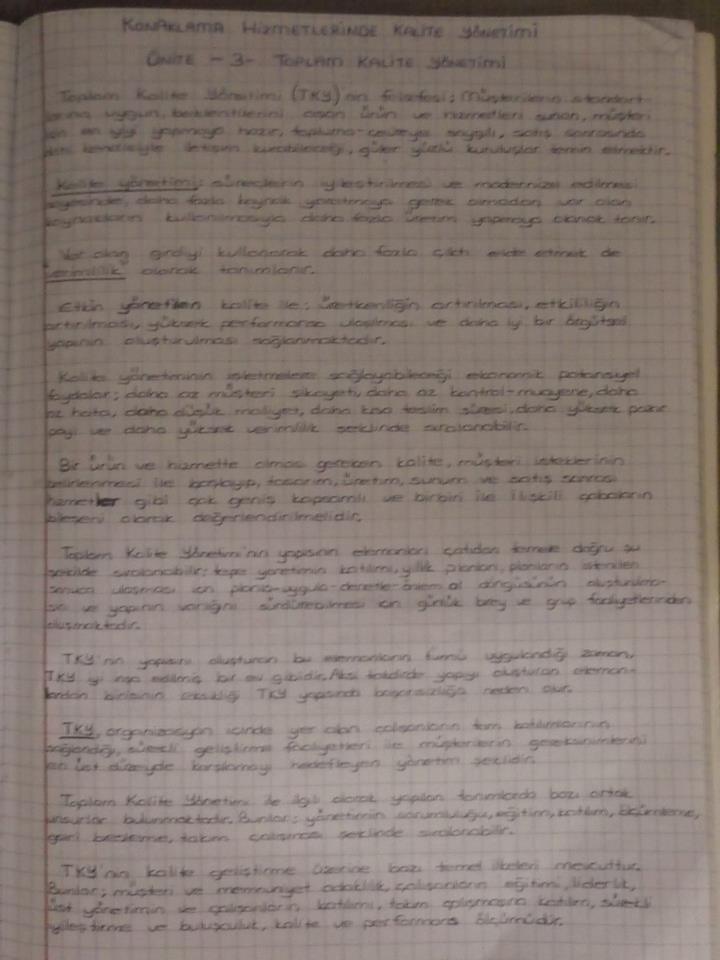 KONAKLAMA HİZMETLERİNDE KALİTE YÖNETİMİ
ÜNİTE - 3- TOPLAM KALİTE YÖNETİMİ
Toplam Kalite Yönetimi (TKY)'nin felsefesi; Müşterilerin standart-
larına uygun, beklentilerini aşan ürün ve hizmetleri sunan, müşteri
için en iyiyi yapmaya hazır, topluma-çevreye saygılı, satış sonrasında
kendisiyle iletişim kurabileceği, güler yüzlü kuruluşlar temin etmektir.
Kalite yönetimi; süreçlerin iyileştirilmesi ve modernize edilmesi
sayesinde, daha fazla kaynak yaratmaya gerek olmadan var olan
kaynakların kullanılmasıyla daha fazla üretim yapmaya olanak tanır.
Var olan girdiyi kullanarak daha fazla çıktı elde etmek de
verimlilik olarak tanımlanır.
Etkin yönetilen kalite ile; üretkenliğin artırılması, etkililiğin
artırılması, yüksek performansa ulaşılması ve daha iyi bir örgütsel
yapının oluşturulması sağlanmaktadır.
Kalite yönetiminin işletmelere sağlayabileceği ekonomik potansiyel
faydalar; daha az müşteri şikayeti, daha az kontrol-muayene, daha
az hata, daha düşük maliyet, daha kısa teslim süresi, daha yüksek pazar
payı ve daha yüksek verimlilik şeklinde sıralanabilir.
Bir ürün ve hizmette olması gereken kalite, müşteri isteklerinin
belirlenmesi ile başlayıp, tasarım, üretim, sunum ve satış sonrası
hizmetler gibi çok geniş kapsamlı ve birbiri ile ilişkili çabaların
bileşeni olarak değerlendirilmelidir.
Toplam Kalite Yönetimi'nin yapısının elemanları çatıdan temele doğru şu
şekilde sıralanabilir; tepe yönetimin katılımı, yıllık planları, planların istenilen
sonuca ulaşması için planla-uygula-denetle-önlem al döngüsünün oluşturulma-
sı ve yapının varlığını sürdürebilmesi için günlük birey ve grup faaliyetlerinden
oluşmaktadır.
TKY'nin yapısını oluşturan bu elemanların tümü uygulandığı zaman,
TKY iyi inşa edilmiş bir ev gibidir. Aksi takdirde yapıyı oluşturan eleman-
lardan birisinin eksikliği TKY yapısında başarısızlığa neden olur.
TKY, organizasyon içinde yer alan çalışanların tam katılımlarının
sağlandığı, sürekli geliştirme faaliyetleri ile müşterilerin gereksinimlerini
en üst düzeyde karşılamayı hedefleyen yönetim şeklidir.
Toplam Kalite Yönetimi ile ilgili olarak yapılan tanımlarda bazı ortak
unsurlar bulunmaktadır. Bunlar; yönetimin sorumluluğu, eğitim, katılım, ölçümleme,
geri besleme, takım çalışması şeklinde sıralanabilir.
TKY'nin kalite geliştirme üzerine bazı temel ilkeleri mevcuttur.
Bunlar; müşteri ve memnuniyet odaklılık, çalışanların eğitimi, liderlik,
üst yönetimin ve çalışanların katılımı, takım çalışmasına katılım, sürekli
iyileştirme ve buluşçuluk, kalite ve performans ölçümüdür.